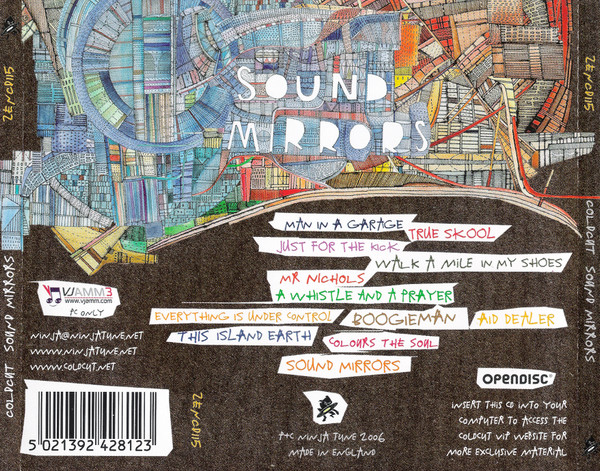 SOUND
MIRRORS
ZENCD115
COLDCUT SOUND MIRRORS
ZENCD115
COLDCUT SOUND MIRRORS
MAN IN A GARAGE
TRUE SKOOL
JUST FOR THE KICK
WALK A MILE IN MY SHOES
MR NICHOLS
A WHISTLE AND A PRAYER
EVERYTHING IS UNDER CONTROL
BOOGIEMAN
AID DEALER
THIS ISLAND EARTH
COLOURS THE SOUL
SOUND MIRRORS
VJAMM3
www.vjamm.com
PC ONLY
NINJA@NINJATUNE.NET
WWW.NINJATUNE.NET
WWW.COLDCUT.NET
5 021392 428123
ZENCD115
P+C NINJA TUNE 2006
MADE IN ENGLAND
OPENDISC
INSERT THIS CD INTO YOUR
COMPUTER TO ACCESS THE
COLDCUT VIP WEBSITE FOR
MORE EXCLUSIVE MATERIAL